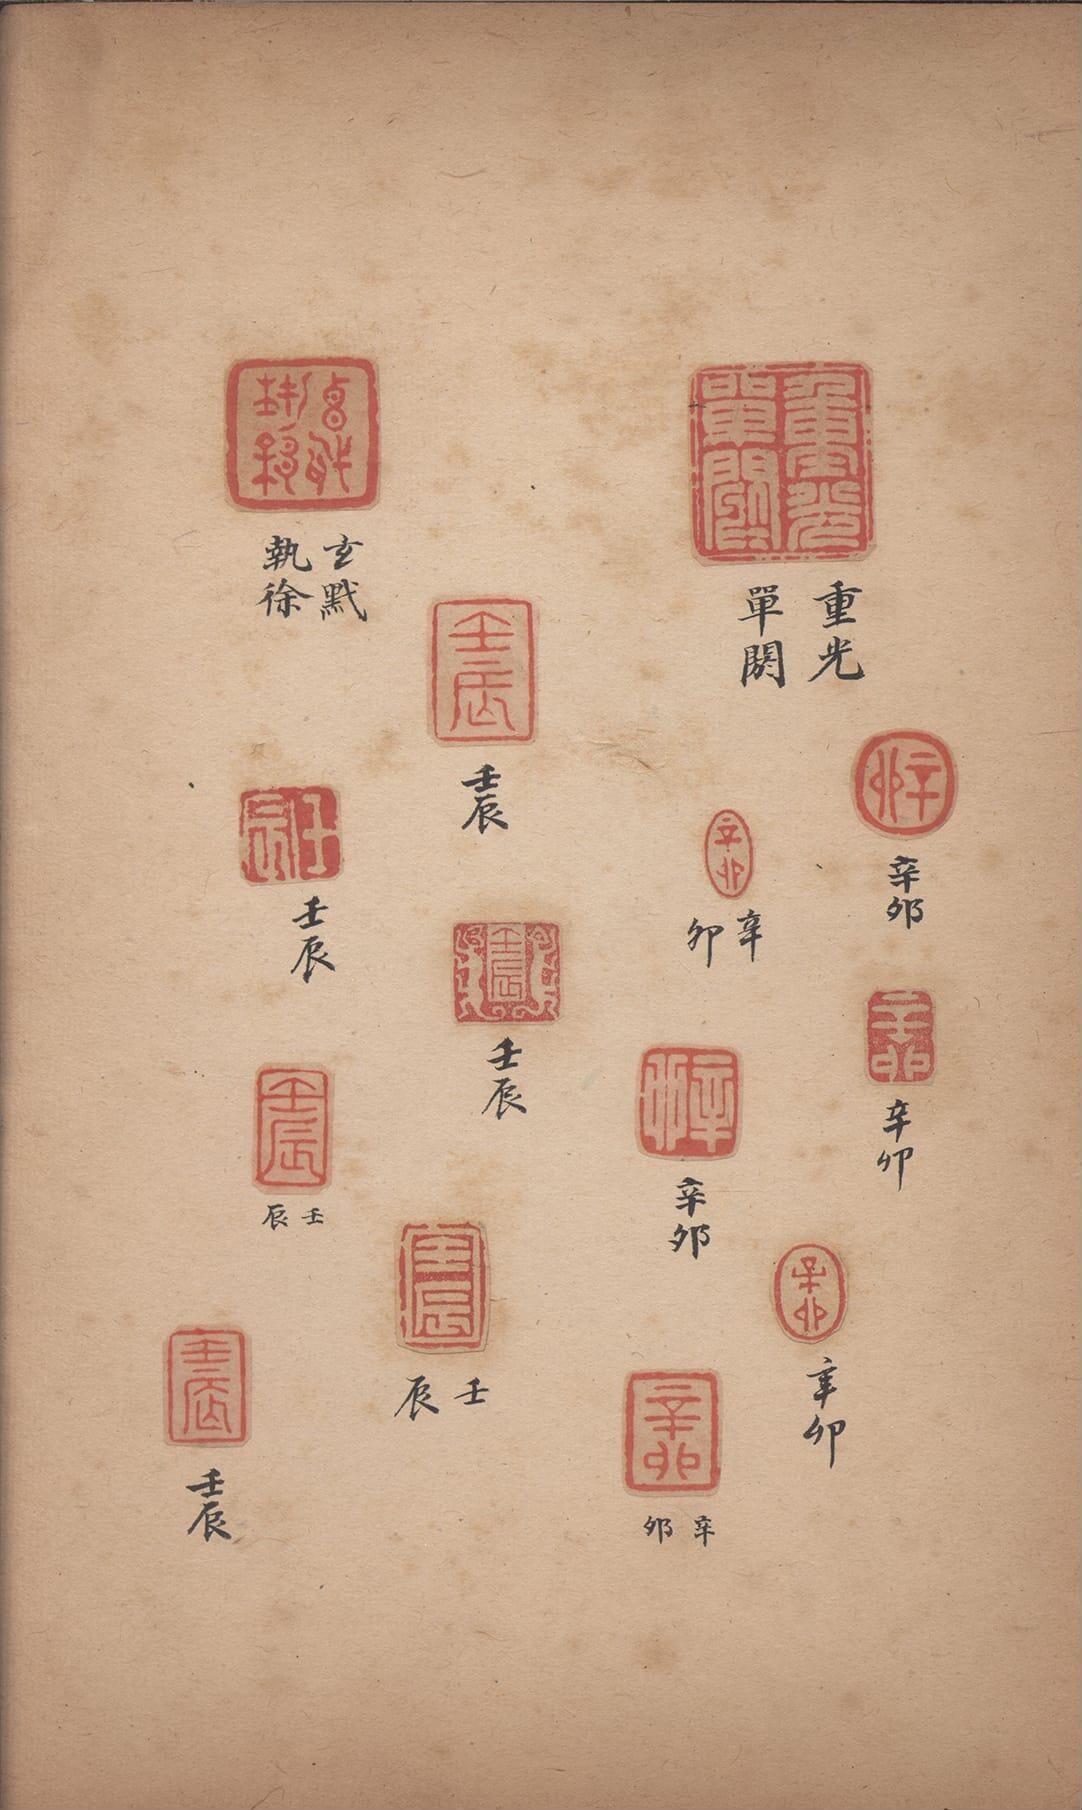 重光
單閼
辛夘
辛
卯
辛卯
辛夘
辛卯
辛
夘
玄黓
執徐
壬辰
壬辰
壬辰
壬
辰
壬
辰
壬辰